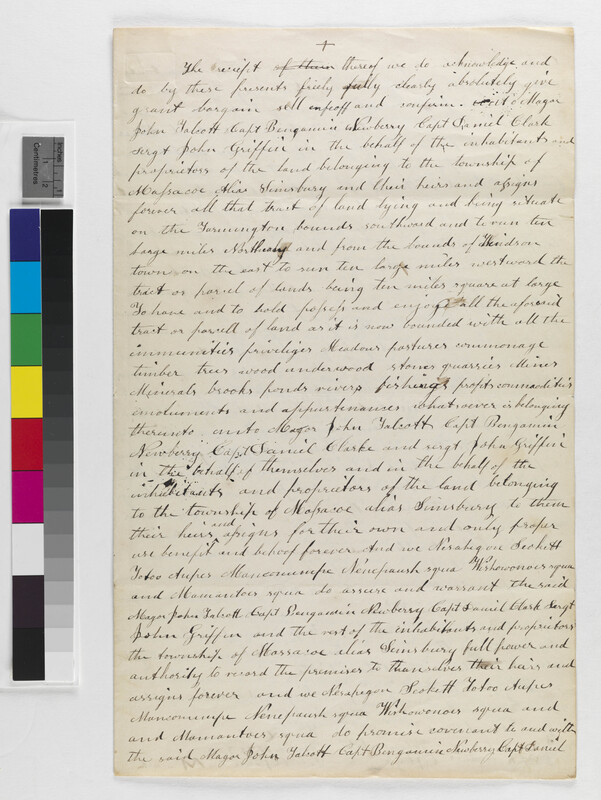 +
The reciept of them thereof we do acknowledge and
do by these presents freely fully clearly absolutely give
grant bargain sell enfeoff and confirm. Magor
John Talcott Capt Bengamin Newberry Capt Daniel Clark
Sergt John Griffin in the behalf of the inhabitants and
proprietors of the land belonging to the township of
Massacoe Alias Simsbury and their heirs and assigns
forever all that tract of land lying and being situate
on the Farmington bounds southward and to run ten
Large miles Northward and from the bounds of Windsor
town on the east to run ten large miles westward the
tract or parcel of lands being ten miles square at large
To have and to hold possess and enjoy all the aforesaid
tract or parcell of land as it is now bounded with all the
immunities priveliges Meadows pastures commonage
timber trees wood underwood stones quarries Mines
Minerals brooks ponds rivers fishings profits commodities
emoluments and appurtenances whatsoever is belonging
thereunto unto Magor John Talcott Capt Bengamin
Newberry Capt Daniel Clarke and sergt John Griffin
in the behalf of themselves and in the behalf of the
inhabitants and proprietors of the land belonging
to the township of Massacoe alias Simsbury to them
their heirs and assigns for their own and only proper
use benefit and behoof forever And we Nesahegon Seokett
Totoo Aupes Mancoumpe Nenepaush squa Wishowonoies squa
and Mamantoes squa do assure and warrant the said
Magor John Talcott Capt Bengamin Newberry Capt Daniel Clark Sergt
John Griffin and the rest of the inhabitants and proprietors
the township of Massacoe alias Simsbury full power and
authority to record the premises to themselves their heirs and
assigns forever and we Nesahegon Seokett Totoo Aupes
Mancoumpe Nenepaush squa Wishowonoies squa and
and Mamantoes squa do promise covenant to and with
the said Magor John Talcott Capt Bengamin Newberry Capt Daniel
Centimetres
Inches